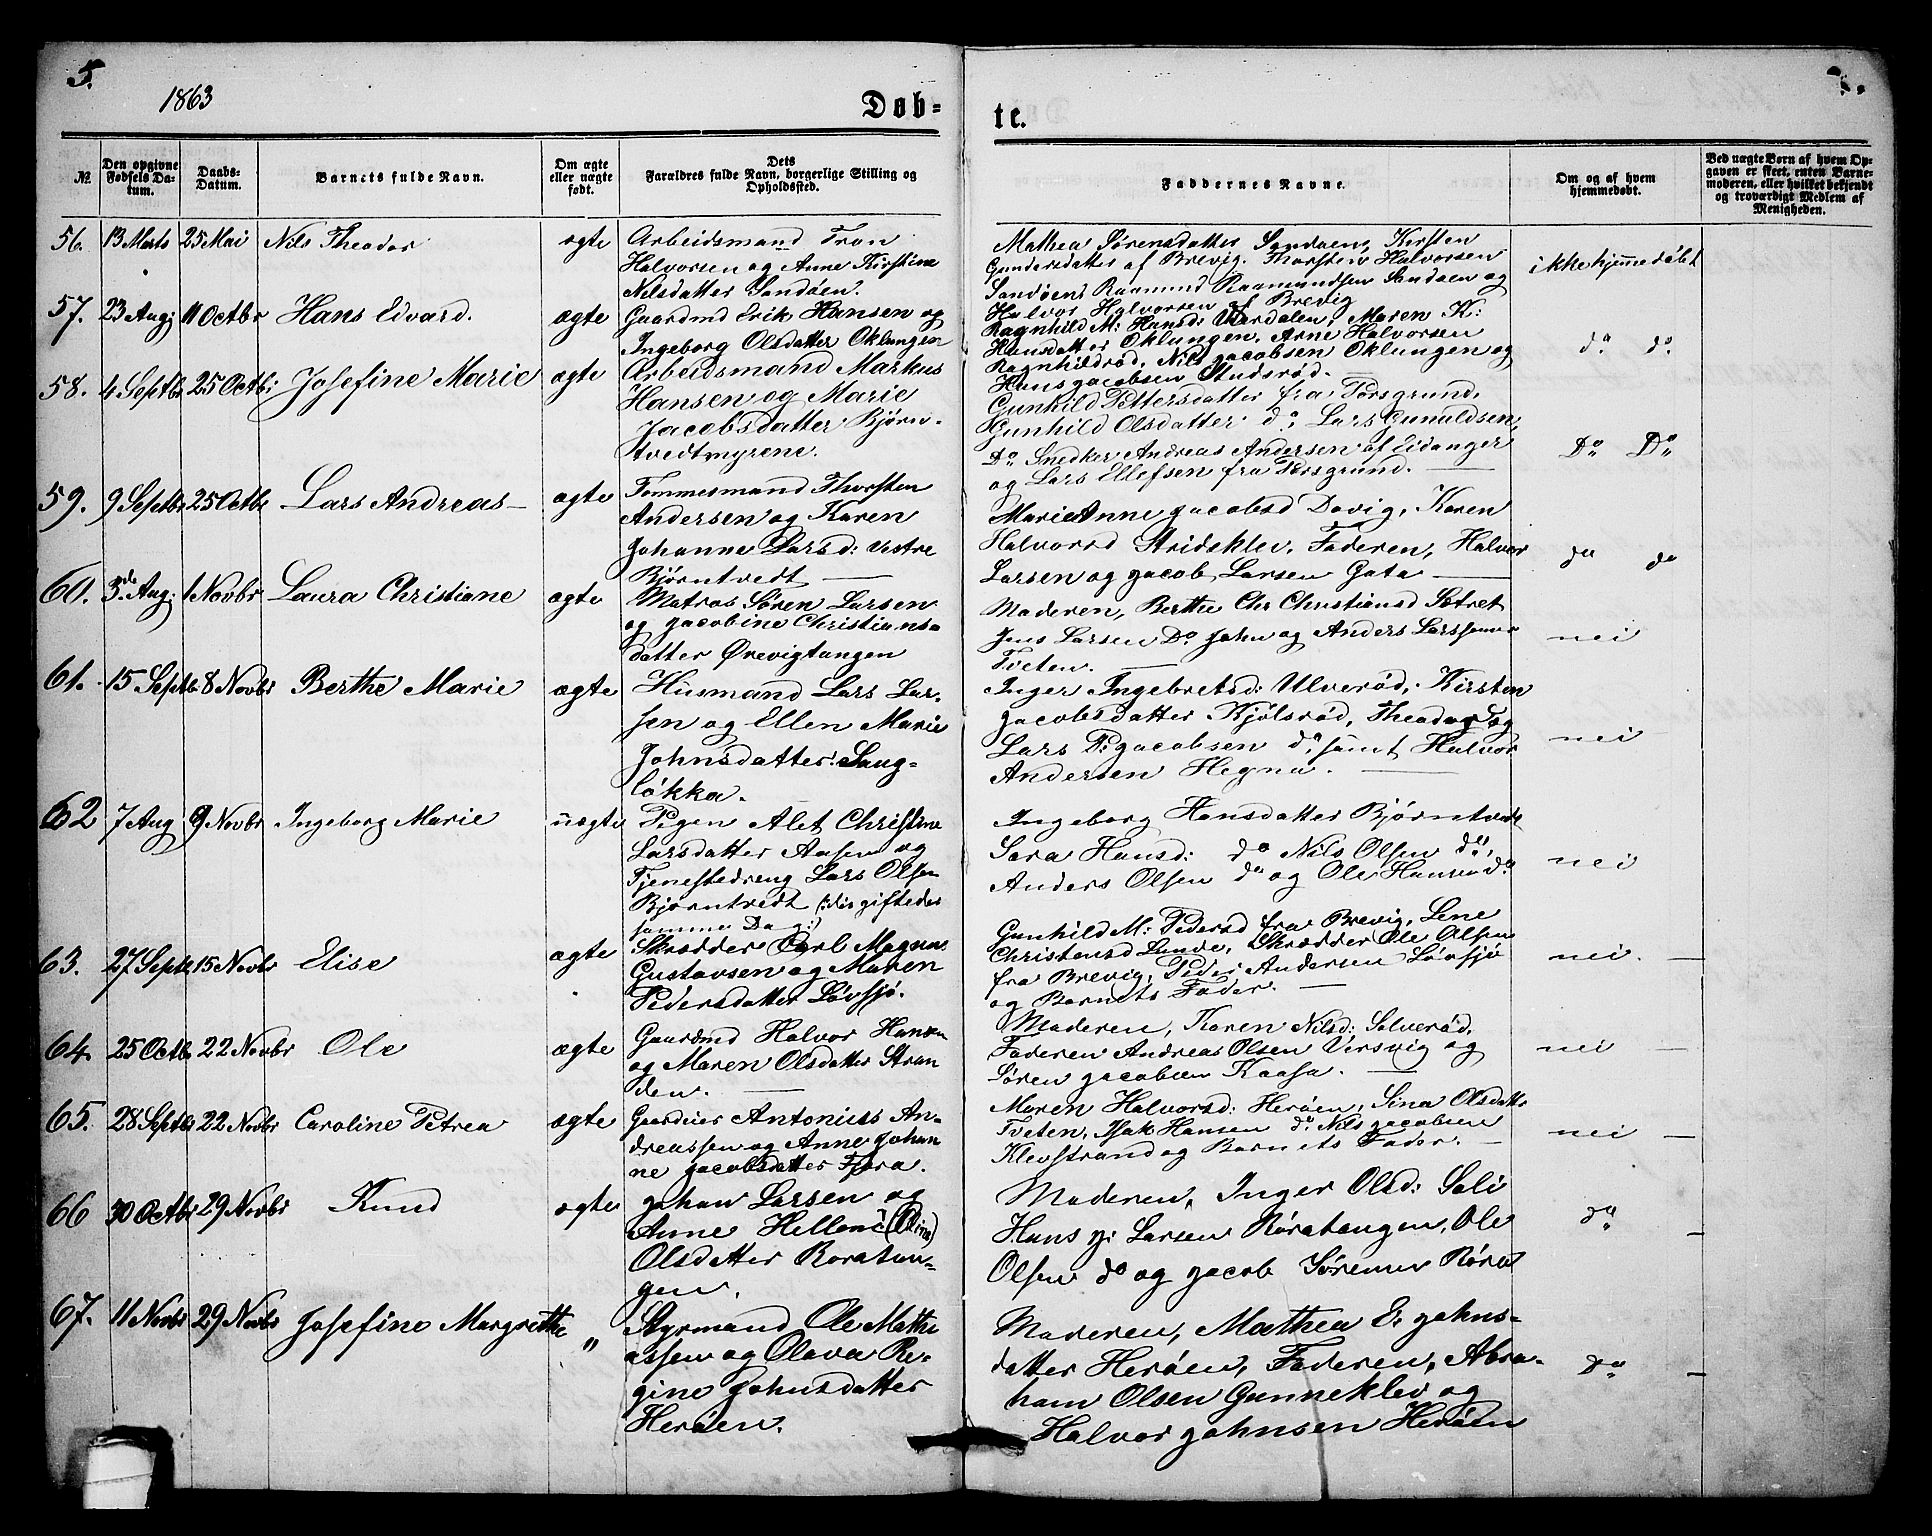 5.
1863
Døb-
te.
№
Den opgivne Fødsels Datum.
Daabs-Datum.
Barnets fulde Navn.
Om ægte eller uægte født.
Dets Forældres fulde Navn, borgerlige Stilling og Opholdssted.
Faddernes Navne.
Om og af hvem hjemmedøbt.
Ved uægte Børn af hvem Opgaven er skeet, enten Barnemoderen, eller hvilket bekjendt og troværdigt Medlem af Menigheden.
56. 13 Marts 25 Mai Nils Theodor ægte
Arbeidsmand Tron
Halvorsen og Anne Kirstine
Nilsdatter Sandøen.
Mathea Sørensdatter Sandøen, Kirsten
Gundersdatter af Brevig. Thorsten Halvorsen
Sandøen, Raamund Raamundsen Sandøen og
Halvor Halvorsen af Brevig
ikke hjemmedøbt
57. 23 Aug: 11 Octbr Hans Edvard. ægte
Gaardmd Erik Hansen og
Ingeborg Olsdatter Oklungen
Ragnhild M: Hansd: Vardalen, Maren K:
Hansdatter Oklungen, Arne Halvorsen
Ragnhildrød, Nils Jacobsen Oklungen og
Hans Jacobsen Studsrød.
do do
58. 4 Septbr 25 Octbr: Josefine Marie ægte
Arbeidsmand Markus
Hansen og Marie
Jacobsdatter Bjørn-
tvedtmyrene.
Gunhild Pettersdatter fra Porsgrund,
Gunhild Olsdatter do, Lars Gunuldsen,
Do Snedker Andreas Andersen af Eidanger
og Lars Ellefsen fra Porsgrund.
Do Do
59. 9 Septbr 25 Octbr Lars Andreas ægte
Tømmesmand Thorsten
Andersen og Karen
Johanne Larsd: Vestre
Bjørntvedt
Marie Anne Jacobsd Døvig, Karen
Halvorsd Stridsklev, Faderen, Halvor
Larsen og Jacob Larsen Gata
do do
60. 3de Aug: 1 Novbr Laura Christiane ægte
Matros Søren Larsen
og Jacobine Christians-
datter Ørevigtangen
Moderen, Berthe Chr Christiansd Sætret
Jens Larsen Do John og Anders Larssønner
Tveten.
nei
61. 15 Septb 8 Novbr Berthe Marie ægte
Husmand Lars Lar-
sen og Ellen Marie
Johnsdatter: Laug-
løkka.
Inger Ingebretsd: Ulverød, Kirsten
Jacobsdatter Kjølsrød, Theodor og
Lars P: Jacobsen do, samt Halvor
Andersen Hegna.
nei
62 7 Aug 9 Novbr Ingeborg Marie uægte
Pigen Alet Christine
Larsdatter Aasen og
Tjenestedreng Lars Olsen
Bjørntvedt (: dis giftedes
samme Dag :)
Ingeborg Hansdatter Bjørntvedt
Sara Hansd: do Nils Olsen do,
Anders Olsen do og Ole Hansen do
nei
63. 27 Septbr 15 Novbr Elise ægte
Skrædder Carl Magnus
Gustavsen og Maren
Pedersdatter Løvsjø.
Gunhild M: Pedersd fra Brevig, Lene
Christensd Lunde, Skrædder Ole Olsen
fra Brevig, Peder Andersen Løvsjø
og Barnets Fader.
nei.
64. 25 Octb 22 Novbr Ole ægte
Gaardmd Halvor Hansen
og Maren Olsdatter Stran
den.
Moderen, Karen Nilsd: Salverød,
Faderen Andreas Olsen Versvig og
Søren Jacobsen Kaasa.
nei
65. 28 Septbr 22 Novbr Caroline Petrea ægte
Gaardeier Antonius An-
dreassen og Anne Johan
ne Jacobsdatter Fjøra.
Maren Halvorsd: Herøen, Sina Olsdatter
Tveten, Isak Hansen do. Nils Jacobsen
Klevstrand og Barnets Fader.
nei
66 30 Octbr 29 Novbr Knud ægte
Johan Larsen og
Anne Hellene (Olina)
Olsdatter Roratan-
gen.
Moderen, Inger Olsd: Sali
Hans J: Larsen Røratangen, Ole
Olsen do og Jacob Sørensen Røra
do
67. 11 Novbr 29 Novbr Josefine Margrethe "
Styrmand Ole Mathi
assen og Olava Re-
gine Johnsdatter
Herøen.
Moderen, Mathea E. Johns-
datter Herøen, Faderen, Abra-
ham Olsen Gunneklev og
Halvor Johnsen Herøen
do